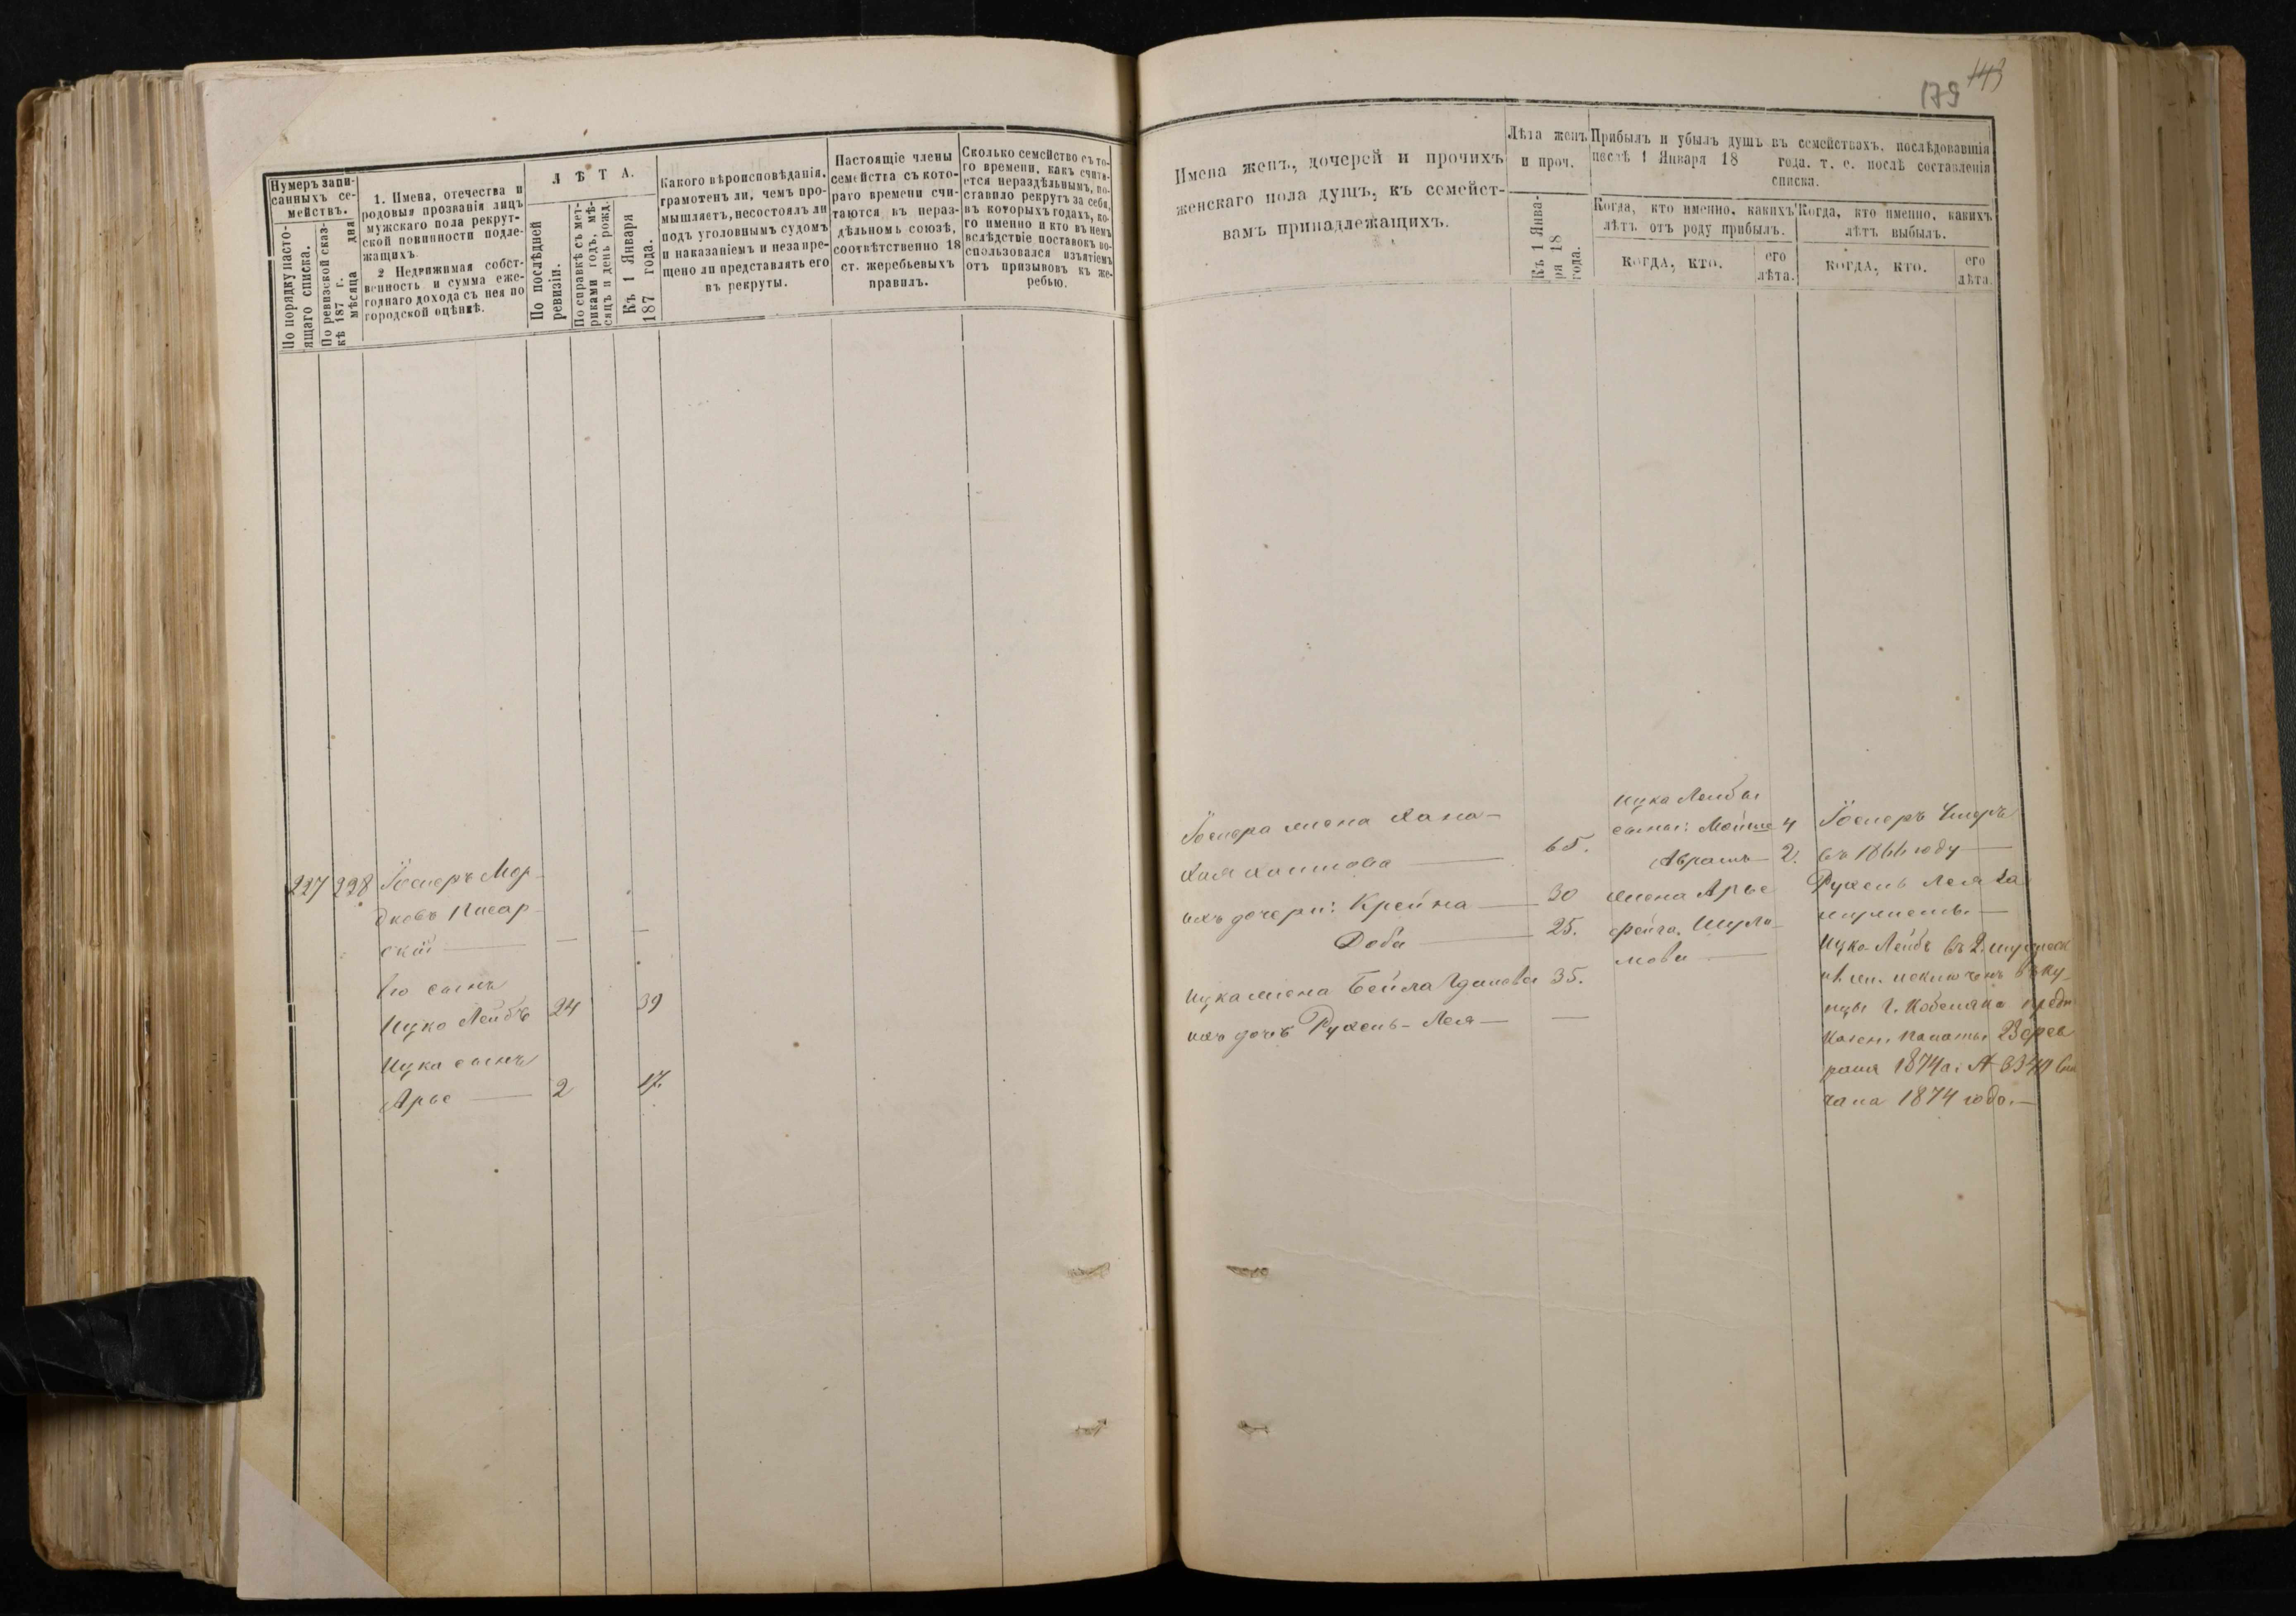 Нумеръ запи-
санныхъ се-
мействъ.
По порядку насто-
ящаго списка.
По ревизской сказ-
кѣ 187 г. дня
мѣсяца
1. Имена, отечества и
родовыя прозванія лицъ
мужскаго пола рекрут-
ской повинности подле-
жащихъ
2 Недвижимая собст-
венность и сумма еже-
годнаго дохода съ нея по
городской оцѣнкѣ.
ЛѢТА.
По послѣдней
ревизіи.
По справкѣ съ мет-
риками годъ, мѣ-
сяцъ и день рожд.
Къ 1 Января
187 года.
Какого вѣроисповѣданія.
грамотенъ ли, чемъ про-
мышляетъ, несостоялъ ли
подъ уголовнымъ судомъ
и наказаніемъ и незапре-
щено ли представлять его
въ рекруты.
Настоящіе члены
семейства съ кото-
раго времени счи-
таются въ нераз-
дѣльномъ союзѣ,
соотвѣтственно 18
ст. жеребьевыхъ
правилъ.
Сколько семейство съ то-
го времени, какъ счита-
ется нераздѣльнымъ, по-
ставило рекрутъ за себя,
въ которыхъ годахъ, ко-
го именно и кто въ немъ
вслѣдствіе поставокъ во-
спользовался изъятіемъ
отъ призывовъ къ же-
ребью.
227 228 Іосперъ Мор-
дковъ Писар-
скій —
Его сынъ
Ицко Лейбъ 24 39
Ицка сынъ
Арье — 2 17.
179 143
Имена женъ, дочерей и прочихъ
женскаго пола душъ, къ семейст-
вамъ принадлежащихъ.
Лѣта женъ
и проч.
Къ 1 Янва-
ря 18
года.
Прибылъ и убылъ душъ въ семействахъ, послѣдовавшія
послѣ 1 Января 18 года. т. е. послѣ составленія
списка.
Когда, кто именно, какихъ
лѣтъ отъ роду прибылъ.
КОГДА, КТО.
его
лѣта.
Когда, кто именно, какихъ
лѣтъ выбылъ.
КОГДА, КТО.
его
лѣта.
жена Хана-
Хая — 65.
ихъ дочери: Крейна — 30
Доба — 25.
Ицка жена Бейла 35.
ихъ дочь Рухень-Лея — —
Ицка Лейбы
сыны: Мойше 4
Абрамъ — 2.
жена Арье
Фейга
мова —
Іосперъ Умеръ
въ 1866 году —
Рухень Лея За
мужемъ. —
Ицко-Лейбъ въ 2.
исключенъ въ ку-
пцы г. Кобеляки
Казен. Палаты 23 Фев
раля 1874 г.
1874 года. —